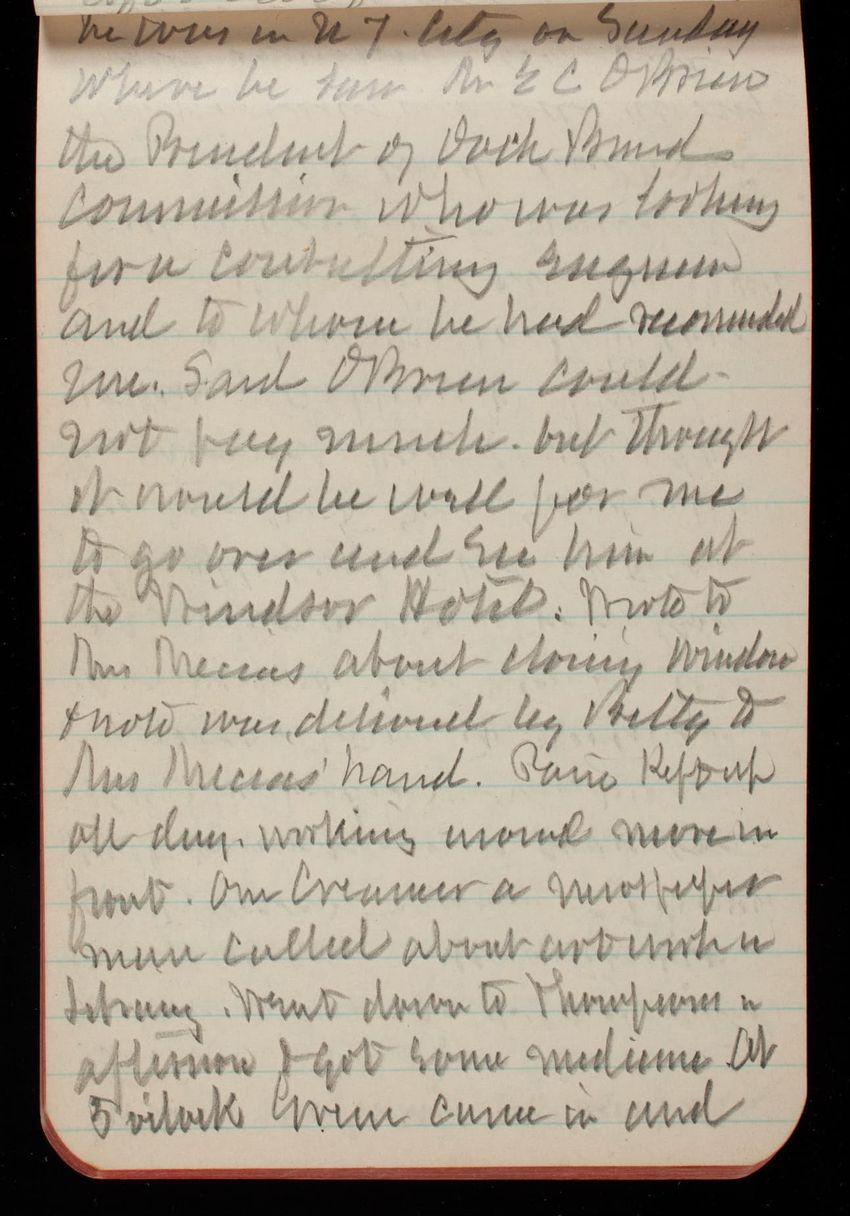 he was in N Y. City on Sunday
where he saw Mr E C OBrien
the President of Dock Board
Commission who was looking
for a consulting Engineer
and to whom he had recomended
me. Said OBrien could
not pay much. but thought
it would be well for me
to go over and See him at
the Windsor Hotel. Wrote to
Mrs about closing window
& note was delivered by Betty to
Mrs hand. Pain Kept up
all day. working around more in
front. One Creamer a newspaper
man called about art work in
Library. Went down to Thompsons in
afternoon & got some medicine. At
5 oclock came in and